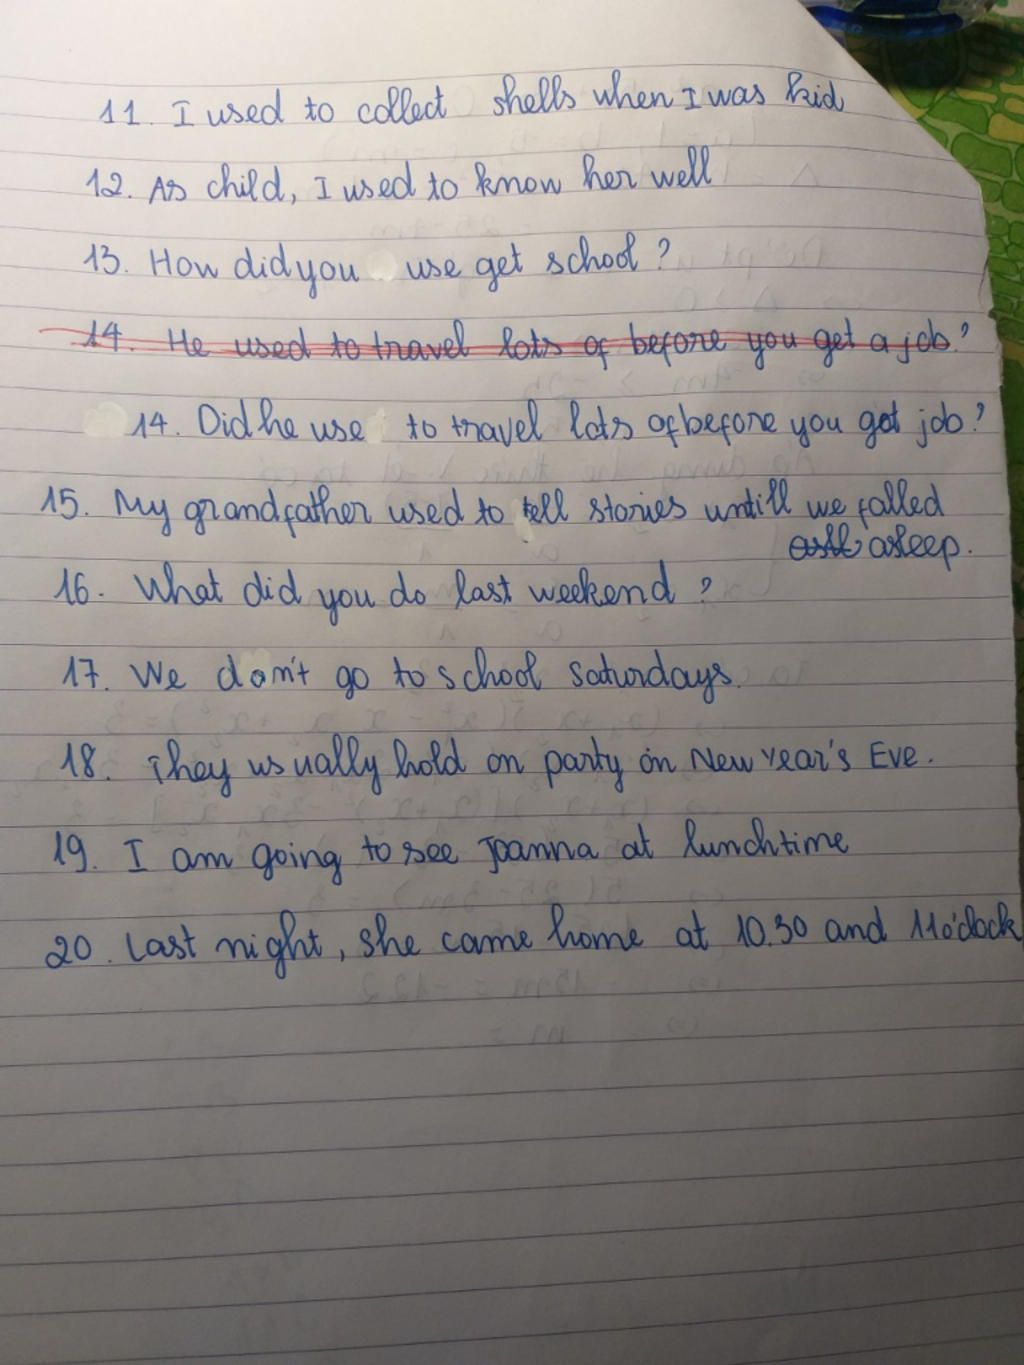 11. I used to collect shells when I was kid
12. As child, I used to know her well
13. How did you use get school?
14. He used to travel lots of before you get a job?
14. Did he use to travel lots of before you got job?
15. My grandfather used to tell stories untill we falled
asleep.
16. What did you do last weekend?
17. We don't go to school saturdays.
18. They usually hold on party on New Year's Eve.
19. I am going to see Joanna at lunchtime
20. Last night, she came home at 10.30 and 11 o'clock